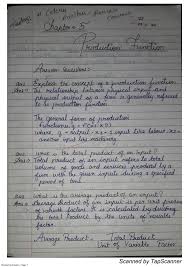 Chapter - 5
Production Function
Answer Questions:-
Explain the concept of a production function.
The relationship between physical input and
physical output of a firm is generally referred
to as production function
The general form of production
function is, q = f(x1, x2)
where, q - output - x1 - input like labour x2 -
another input like machine.
What is the total product of an input?
Total product of an input refers to total
volume of goods and services produced by a
firm with the given input during a specified
period of time.
What is the average product of an input?
The average product of an input is as per unit
of variable factor. It is calculated by dividing
the Total Product by the units of variable
factor.
Average Product = Total Product
Unit of Variable Factor
Scanned by TapScanner